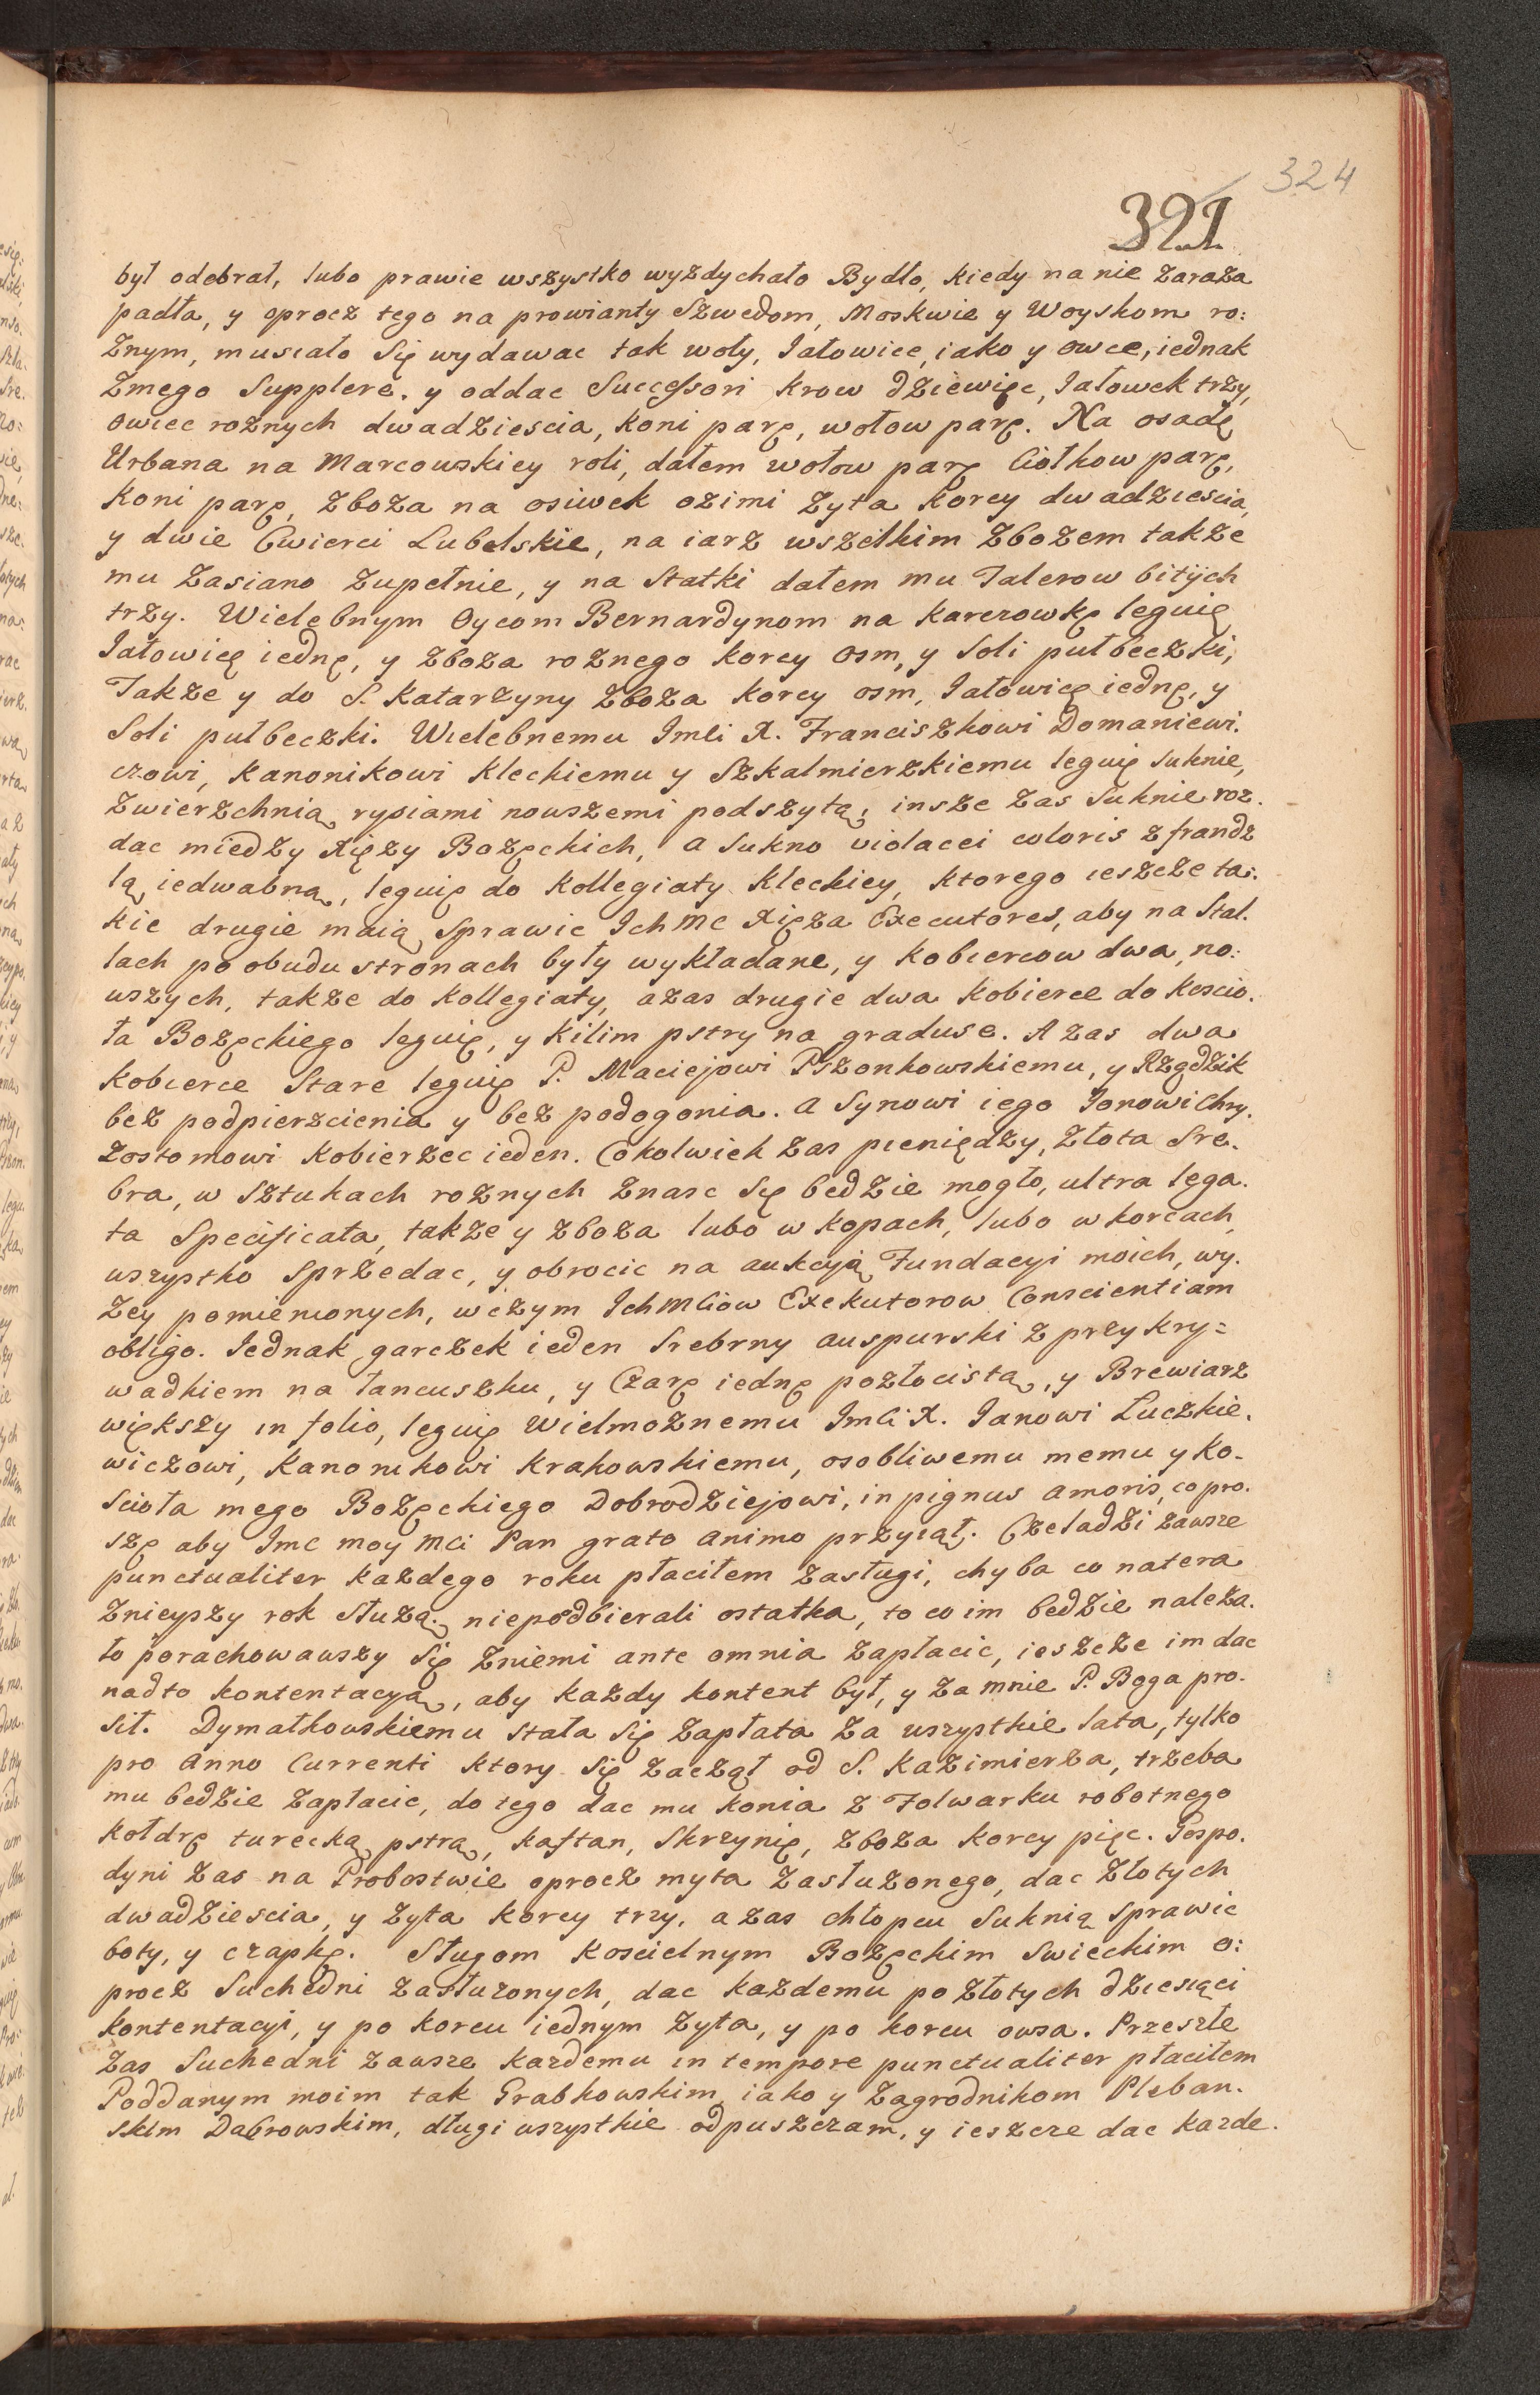 324
321
był odebrał, lubo prawie wszystko wyzdychało Bydło, kiedy na nie zaraza
padła, y oprocz tego na prowianty Szwedom, Moskwie y Woyskom ro:
żnym, musiało się wydawac tak woły, Jałowice, iako y owce, iednak
Zmego Supplere. y oddac Successori krow dziewięc, Jałowek trzy,
owiec roznych dwadziescia, koni parę, wołow parę. Na osadę
Urbana na Marcowskiey roli, dałem wołow parę Ciołkow parę,
Koni parę, zboza na osiwek ozimi Zyta korcy dwadziescia,
y dwie Cwierci Lubelskie, na iarz wszelkim Zbozem takze
mu Zasiano Zupełnie, y na Statki dałem mu Talerow bitÿch
trzy. Wielebnym Oycom Bernardynom na karczowkę leguię
Jałowicę iednę, y zboza roznego korcy osm, y Soli pułbeczki,
Takze y do S. Katarzyny zboza korcy osm, Jałowicę iednę, y
Soli pułbeczki. Wielebnemu Imci X. Franciszkowi Domaniewi.
czowi, Kanonikowi Kleckiemu y Szkalmierzkiemu leguię suknie,
Zwierzchnią rysiami nowszemi podszytą, insze zas Suknie roz.
dac miedzy Xięzy Bozęckich, a Sukno violacei coloris z frandz
lą iedwabną, leguię do Kollegiaty Kleckiey, ktorego ieszcze ta:
kie drugie maią Sprawic Ich Mc Xięza Executores, aby na Stal.
lach po obudu stronach były wykładane, y kobiercow dwa, no:
wszych, takze do Kollegiaty, azas drugie dwa Kobierce do koscio.
ła Bozęckiego leguię, y kilim pstry na graduse. A zas dwa
kobierce Stare leguię P. Maciejowi Pszonkowskiemu, y Rzędzik
bez podpierzcienia y bez podogonia. a Synowi iego Janowi Chry.
zostomowi Kobierzec ieden. Cokolwiek zas pieniędzy, Złota Sre.
bra, w Sztukach roznych znasc się bedzie mogło, ultra lega.
ta Specificata, takze y zboza lubo w kopach, lubo w korcach,
wszystko Sprzedac, y obrocic na aukcyą Fundacyi moich, wy.
zey pomienionych, wczym Ich Mciow Exekutorow Conscientiam
obligo. Jednak garczek ieden Srebrny auspurski z przykry=
wadkiem na łancuszku, y Czarę iednę pozłocistą, y Brewiarz
większy in folio, leguię Wielmoznemu Imci X. Janowi Łuczkie.
wiczowi, Kanonikowi Krakowskiemu, osobliwemu memu y ko.
scioła mego Bozęckiego Dobrodziejowi, in pignus amoris, co pro.
szę aby Imc moy Mci Pan grato animo przyiął. Czeladzi zawsze
punctualiter kazdego roku płaciłem zasługi, chyba co natera
znieyszy rok słuzą. niepodbierali ostatka, to co im bedzie naleza.
ło porachowawszy się zniemi ante omnia zapłacic, ieszcze im dac
nadto kontentacyą, aby kazdy kontent był, y za mnie P. Boga pro.
sił. Dymałkowskiemu stała się zapłata za wszystkie lata, tylko
pro Anno Currenti ktory się zaczął od S. Kazimierza, trzeba
mu bedzie zapłacic, do tego dac mu konia z Folwarku robotnego
kołdrę turecką pstrą, kaftan, Skrzynię, zboza korcy pięc. Gospo.
dyni zas na Probostwie oprocz myta zasłuzonego, dac złotych
dwadziescia, y zyta korcy trzy. a zas chłopcu suknią sprawic
boty, y czapkę. Sługom koscielnym Bozęckim Swieckim o:
procz Suchedni zasłuzonych, dac kazdemu po złotych dziesiąci
kontentacyi, y po korcu iednym zyta, y po korcu owsa. Przeszłe
zas Suchedni zawsze kazdemu in tempore punctualiter płaciłem
Poddanym moim tak Grabkowskim, iako y Zagrodnikom Pleban.
skim Dabrowskim, długi wszystkie odpuszczam, y ieszcze dac kazde.